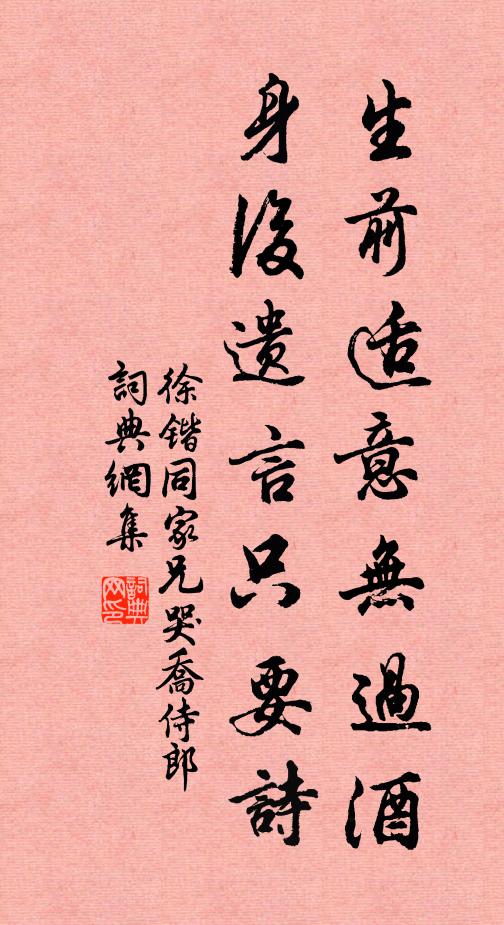 生前适意無過酒
身後遺言只要詩
徐鍇同家兄哭喬侍郎
詞典網集
詞典
網印